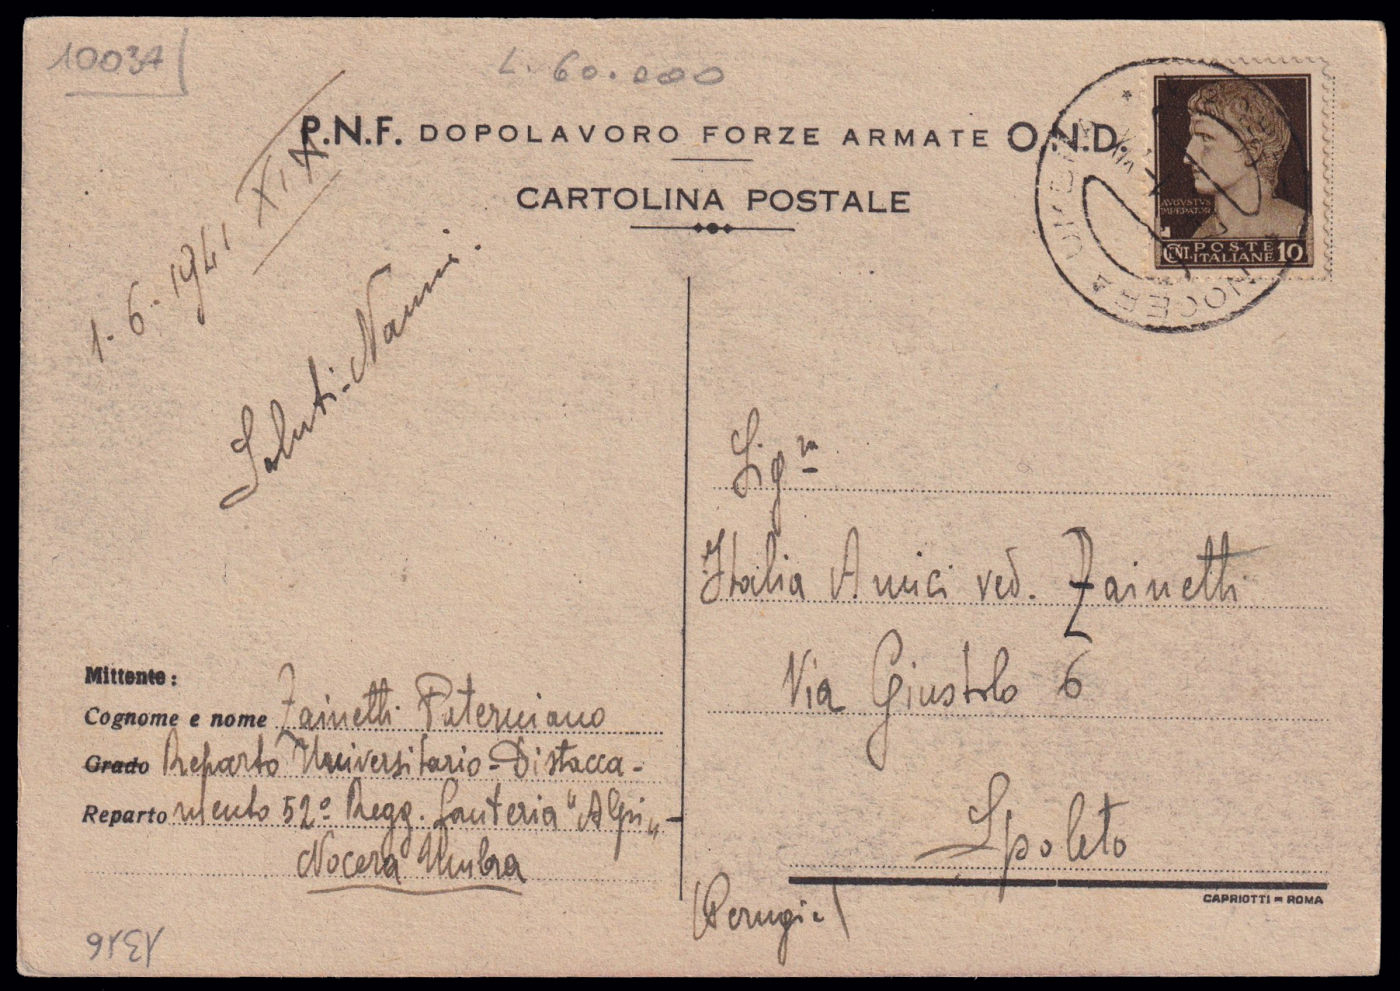 10037
L. 60.000
P.N.F. DOPOLAVORO FORZE ARMATE O.N.D.
CARTOLINA POSTALE
AVGVSTVS
IMPERATOR
CENT. POSTE ITALIANE 10
NOCERA UMBRA
1-6-1941 XIX
Saluti-Nanni
Sig.ra
Italia Amici ved. Zainetti
Via Giustolo 6
Spoleto
(Perugia)
Mittente:
Cognome e nome Zainetti Paterniano
Grado Reparto Universitario-Distacca-
Reparto mento 52° Regg. fanteria "Alpi"-
Nocera Umbra
CAPRIOTTI - ROMA
1316